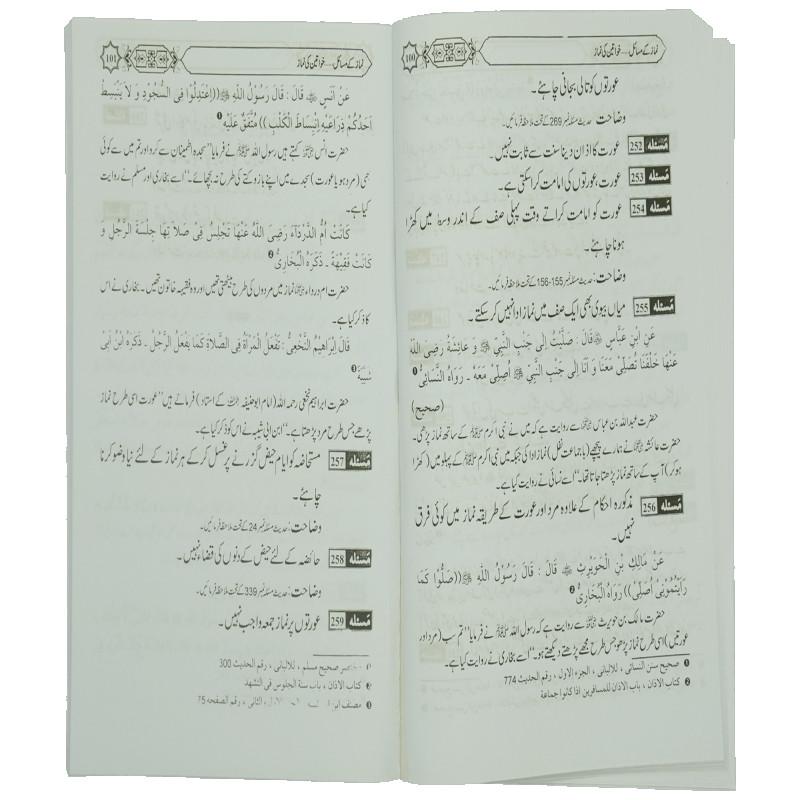 نماز کے مسائل.....خواتین کی نماز
100
عورتوں کو تالی بجانی چاہئے۔
وضاحت حدیث مسئلہ نمبر 269 کے تحت ملاحظہ فرمائیں۔
مسئلہ 252 عورت کا اذان دینا سنت سے ثابت نہیں۔
مسئلہ 253 عورت، عورتوں کی امامت کرا سکتی ہے۔
مسئلہ 254 عورت کو امامت کراتے وقت پہلی صف کے اندر وسط میں کھڑا
ہونا چاہئے۔
وضاحت: حدیث مسئلہ نمبر 155-156 کے تحت ملاحظہ فرمائیں۔
مسئلہ 255 میاں بیوی بھی ایک صف میں نماز ادا نہیں کر سکتے۔
عَنِ ابْنِ عَبَّاسٍ ؓ قَالَ : صَلَّيْتُ اِلٰى جَنْبِ النَّبِيِّ ﷺ وَ عَائِشَةُ رَضِيَ اللّٰهُ
عَنْهَا خَلْفَنَا تُصَلِّيْ مَعَنَا وَ اَنَا اِلٰى جَنْبِ النَّبِيِّ ﷺ اُصَلِّيْ مَعَهُ ۔ رَوَاهُ النَّسَائِيُّ ❶
(صحیح)
حضرت عبداللہ بن عباس ؓ سے روایت ہے کہ میں نے نبی اکرم ﷺ کے ساتھ نماز پڑھی۔
حضرت عائشہ ؓ نے ہمارے پیچھے (باجماعت نفل) نماز ادا کی جبکہ میں نبی اکرم ﷺ کے پہلو میں (کھڑا
ہو کر) آپ کے ساتھ نماز پڑھتا جاتا تھا۔“ اسے نسائی نے روایت کیا ہے۔
مسئلہ 256 مذکورہ احکام کے علاوہ مرد اور عورت کے طریقہ نماز میں کوئی فرق
نہیں۔
عَنْ مَالِكِ بْنِ الْحُوَيْرِثِ ؓ قَالَ : قَالَ رَسُوْلُ اللّٰهِ ﷺ ((صَلُّوْا كَمَا
رَأَيْتُمُوْنِيْ اُصَلِّيْ)) رَوَاهُ الْبُخَارِيُّ ❷
حضرت مالک بن حویرث ؓ سے روایت ہے کہ رسول اللہ ﷺ نے فرمایا ”تم سب (مرد اور
عورتیں) اسی طرح نماز پڑھو جس طرح مجھے پڑھتے دیکھتے ہو۔“ اسے بخاری نے روایت کیا ہے۔
❶ صحیح سنن النسائی ، للالبانی ، الجزء الاول ، رقم الحدیث 774
❷ کتاب الاذان ، باب الاذان للمسافرین اذا کانوا جماعة
نماز کے مسائل.....خواتین کی نماز
101
عَنْ اَنَسٍ ؓ قَالَ : قَالَ رَسُوْلُ اللّٰهِ ﷺ ((اِعْتَدِلُوْا فِي السُّجُوْدِ وَ لَا يَنْبَسِطْ
اَحَدُكُمْ ذِرَاعَيْهِ اِنْبِسَاطَ الْكَلْبِ)) مُتَّفَقٌ عَلَيْهِ ❶
حضرت انس ؓ کہتے ہیں رسول اللہ ﷺ نے فرمایا ”سجدہ اطمینان سے کرو اور تم میں سے کوئی
بھی (مرد ہو یا عورت) سجدے میں اپنے بازو کتے کی طرح نہ بچھائے۔“ اسے بخاری اور مسلم نے روایت
کیا ہے۔
كَانَتْ اُمُّ الدَّرْدَاءِ رَضِيَ اللّٰهُ عَنْهَا تَجْلِسُ فِيْ صَلَاتِهَا جِلْسَةَ الرَّجُلِ وَ
كَانَتْ فَقِيْهَةً ۔ ذَكَرَهُ الْبُخَارِيُّ ❷
حضرت ام درداء ؓ نماز میں مردوں کی طرح بیٹھتی تھیں اور وہ فقیہہ خاتون تھیں۔ بخاری نے اس
کا ذکر کیا ہے۔
قَالَ اِبْرَاهِيْمُ النَّخَعِيُّ : تَفْعَلُ الْمَرْأَةُ فِي الصَّلَاةِ كَمَا يَفْعَلُ الرَّجُلُ ۔ ذَكَرَهُ ابْنُ اَبِيْ
شَيْبَةَ ❸
حضرت ابراہیم نخعی رحمہ اللہ (امام ابوحنیفہ کے استاد) فرماتے ہیں ”عورت اسی طرح نماز
پڑھے جس طرح مرد پڑھتا ہے۔“ ابن ابی شیبہ نے اس کو ذکر کیا ہے۔
مسئلہ 257 مستحاضہ کو ایام حیض گزرنے پر غسل کر کے ہر نماز کے لئے نیا وضو کرنا
چاہئے۔
وضاحت: حدیث مسئلہ نمبر 24 کے تحت ملاحظہ فرمائیں۔
مسئلہ 258 حائضہ کے لئے حیض کے دنوں کی قضاء نہیں۔
وضاحت: حدیث مسئلہ نمبر 339 کے تحت ملاحظہ فرمائیں۔
مسئلہ 259 عورتوں پر نماز جمعہ واجب نہیں۔
مختصر صحیح مسلم ، للالبانی ، رقم الحدیث 300
کتاب الاذان ، باب سنة الجلوس فی التشهد
مصنف ابن الثانی ، رقم الصفحه 75